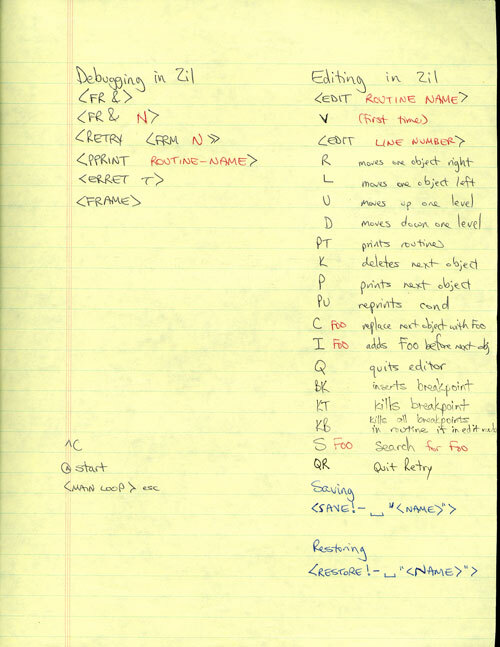 Debugging in Zil
<FR &>
<FR & N>
<RETRY <FRM N>>
<PPRINT ROUTINE-NAME>
<ERRET T>
<FRAME>
^C
@ start
<MAIN LOOP> esc
Editing in Zil
<EDIT ROUTINE NAME>
V (First time)
<EDIT LINE NUMBER>
R moves one object right
L moves one object left
U moves up one level
D moves down one level
PT prints routines
K deletes next object
P prints next object
PU reprints cond
C FOO replace next object with Foo
I FOO adds Foo before next obj
Q quits editor
BK inserts breakpoint
KT kills breakpoint
KB kills all breakpoints
in routine if in edit mode
S FOO Search for Foo
QR Quit Retry
Saving
<SAVE!- ␣ "<NAME>">
Restoring
<RESTORE!- ␣ "<NAME>">